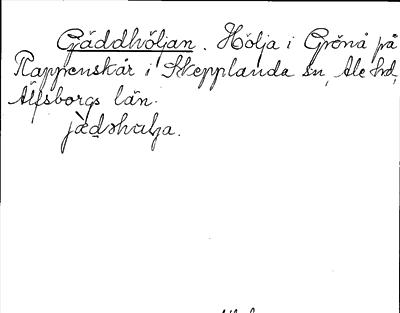 Gäddhöljan. Hölja i Grönå på
Rappenskår i Skepplanda sn, Ale hd,
Älfsborgs län.